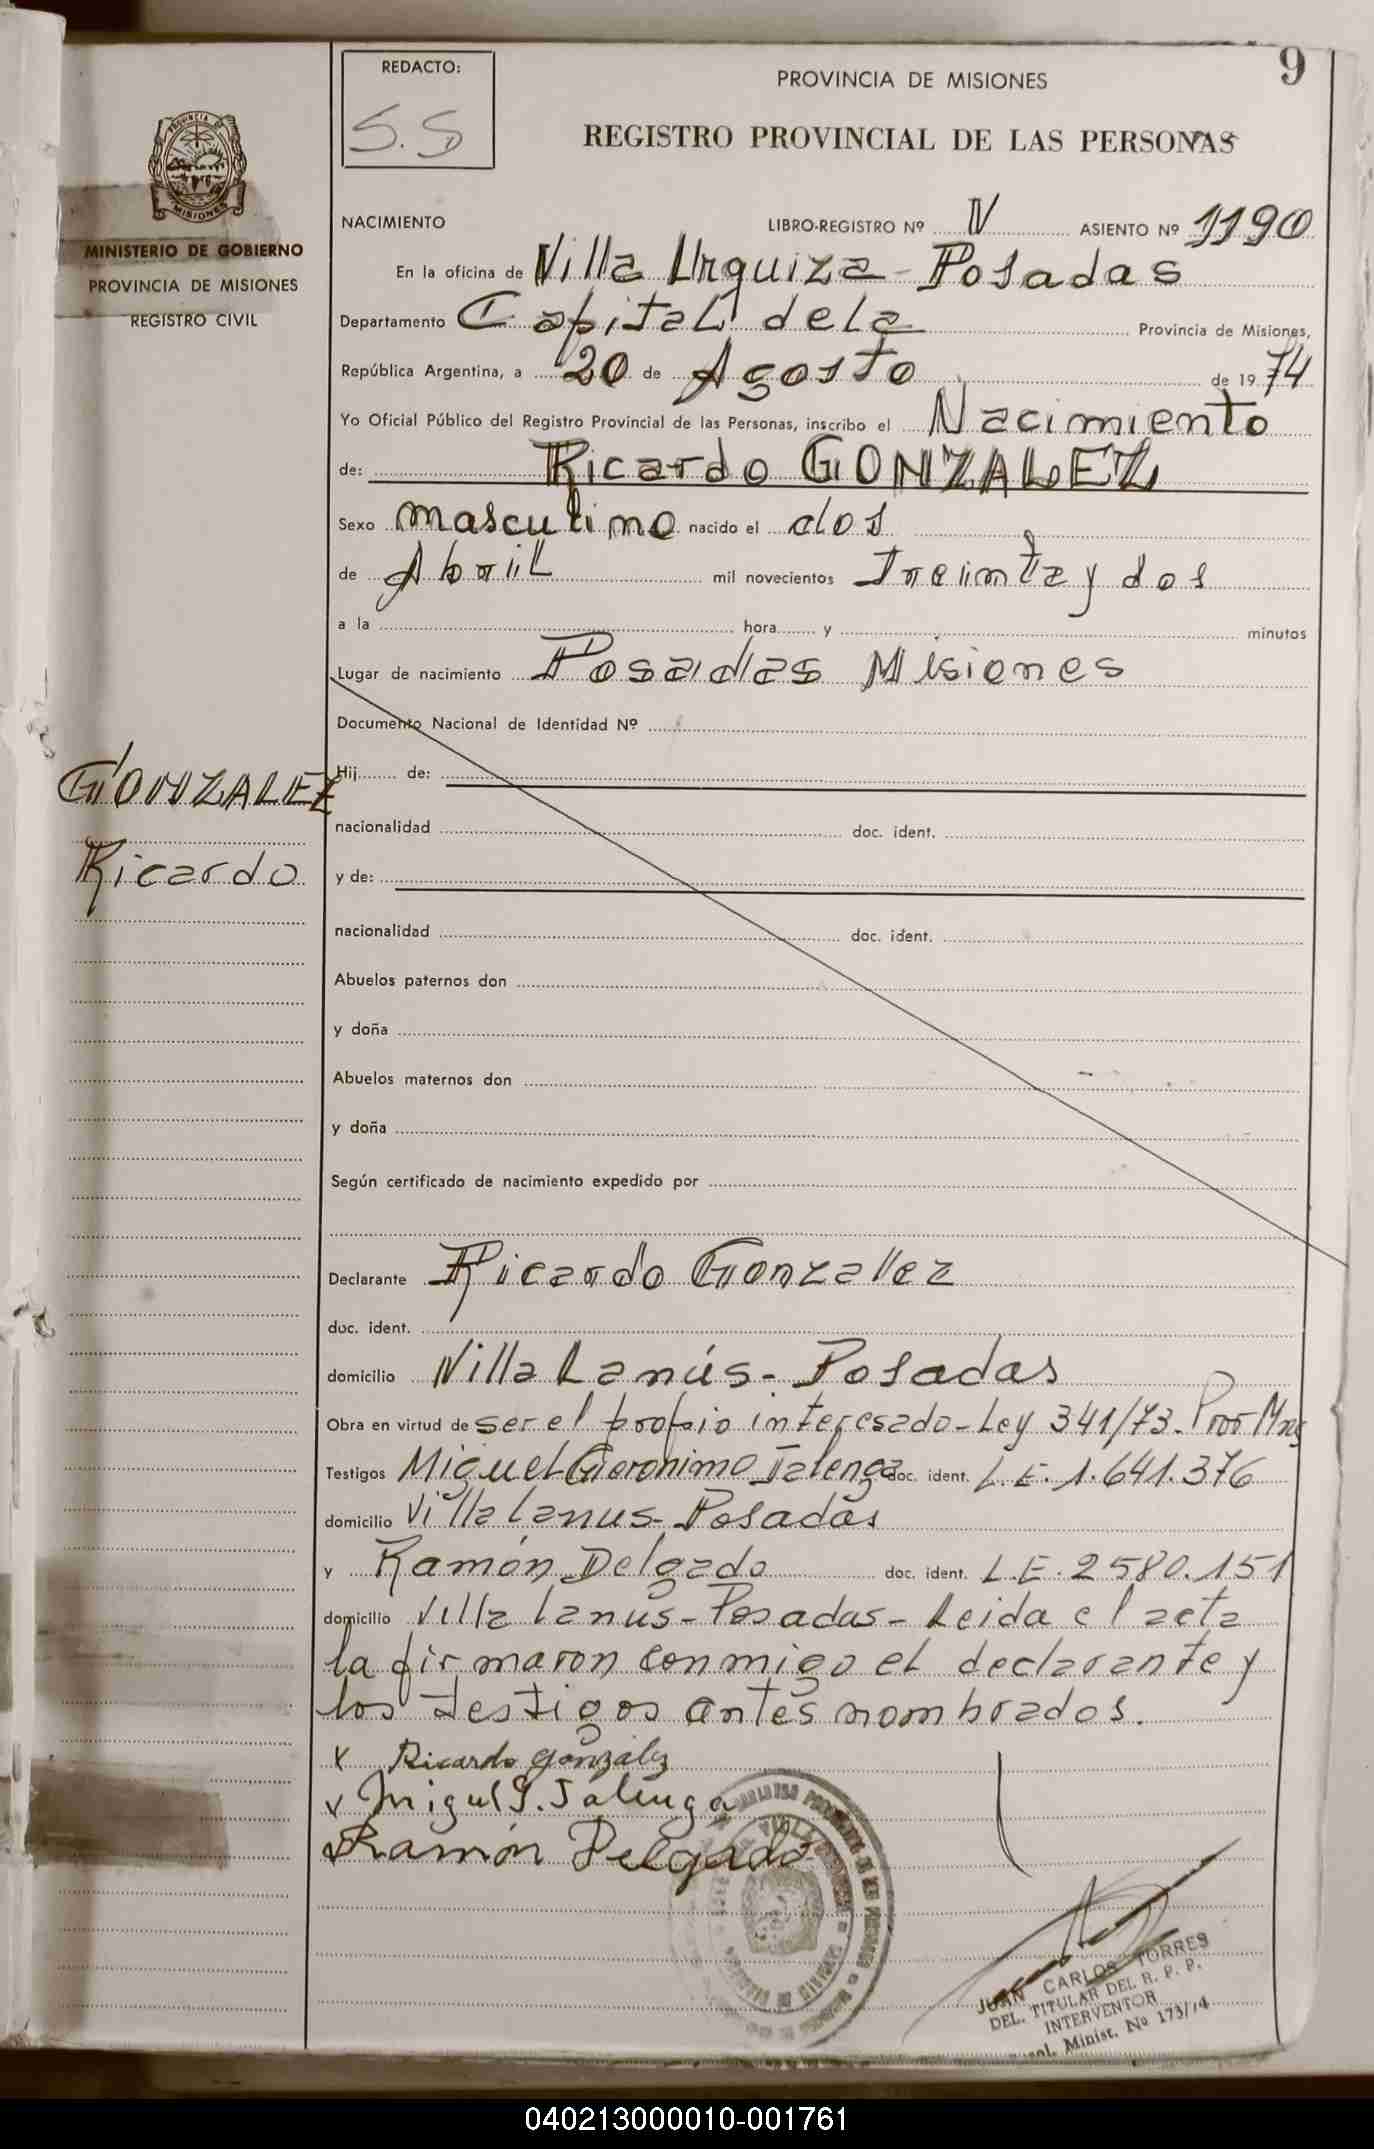 9
REDACTO:
S.S
PROVINCIA DE MISIONES
REGISTRO PROVINCIAL DE LAS PERSONAS
PROVINCIA DE
MISIONES
MINISTERIO DE GOBIERNO
PROVINCIA DE MISIONES
REGISTRO CIVIL
NACIMIENTO LIBRO-REGISTRO Nº IV ASIENTO Nº 1190
En la oficina de Villa Urquiza - Posadas
Departamento Capital de la Provincia de Misiones,
República Argentina, a 20 de Agosto de 1974
Yo Oficial Público del Registro Provincial de las Personas, inscribo el Nacimiento
de: Ricardo GONZALEZ
Sexo masculino nacido el dos
de Abril mil novecientos Treinta y dos
a la hora y minutos
Lugar de nacimiento Posadas Misiones
Documento Nacional de Identidad Nº
GONZALEZ
Ricardo
Hij de:
nacionalidad doc. ident.
y de:
nacionalidad doc. ident.
Abuelos paternos don
y doña
Abuelos maternos don
y doña
Según certificado de nacimiento expedido por
Declarante Ricardo Gonzalez
doc. ident.
domicilio Villa Lanús - Posadas
Obra en virtud de ser el propio interesado - Ley 341/73.
Testigos Miguel Geronimo Talenga doc. ident. L.E. 1.641.376
domicilio Villa Lanus - Posadas
y Ramón Delgado doc. ident. L.E. 2580.151
domicilio Villa Lanus - Posadas - Leida el acta
la firmaron conmigo el declarante y
los testigos antes nombrados.
x Ricardo González
x Miguel G. Talenga
x Ramón Delgado
JUAN CARLOS TORRES
DEL. TITULAR DEL R. P. P.
INTERVENTOR
Minist. Nº 173/74
040213000010-001761